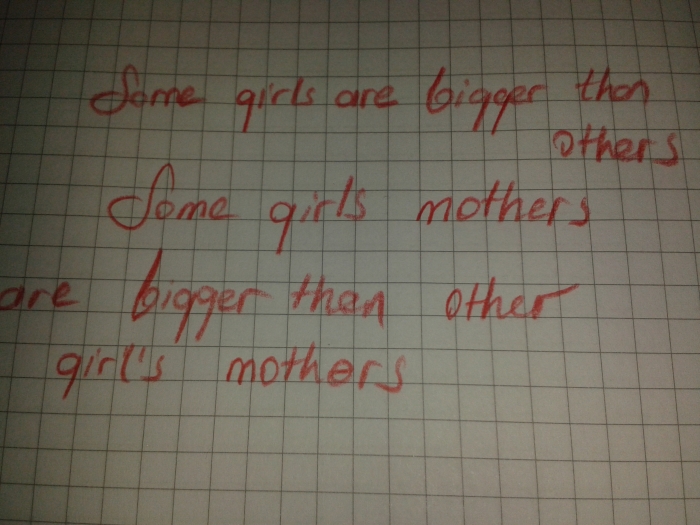 Some girls are bigger than
others
Some girls mothers
are bigger than other
girl's mothers